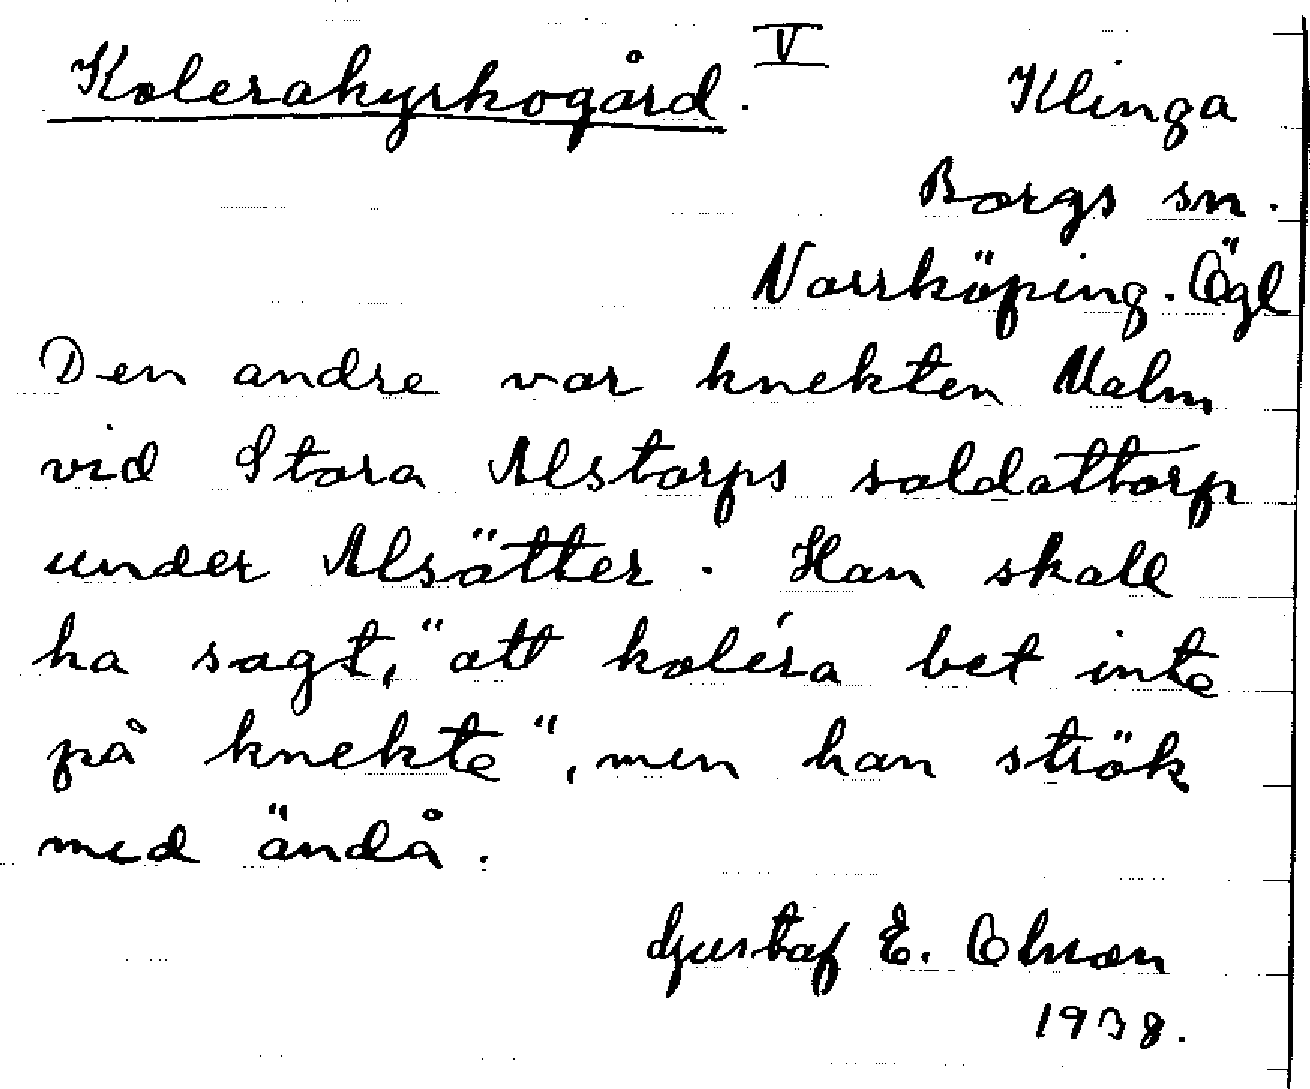 Kolerakyrkogård. V
Klinga
Borgs sn.
Norrköping. Ögl
Den andre var knekten Malm
vid Stora Alstorps soldattorp
under Alsätter. Han skall
ha sagt, "att koléra bet inte
på knekte", men han strök
med ändå.
Gustaf E. Olsson
1938.